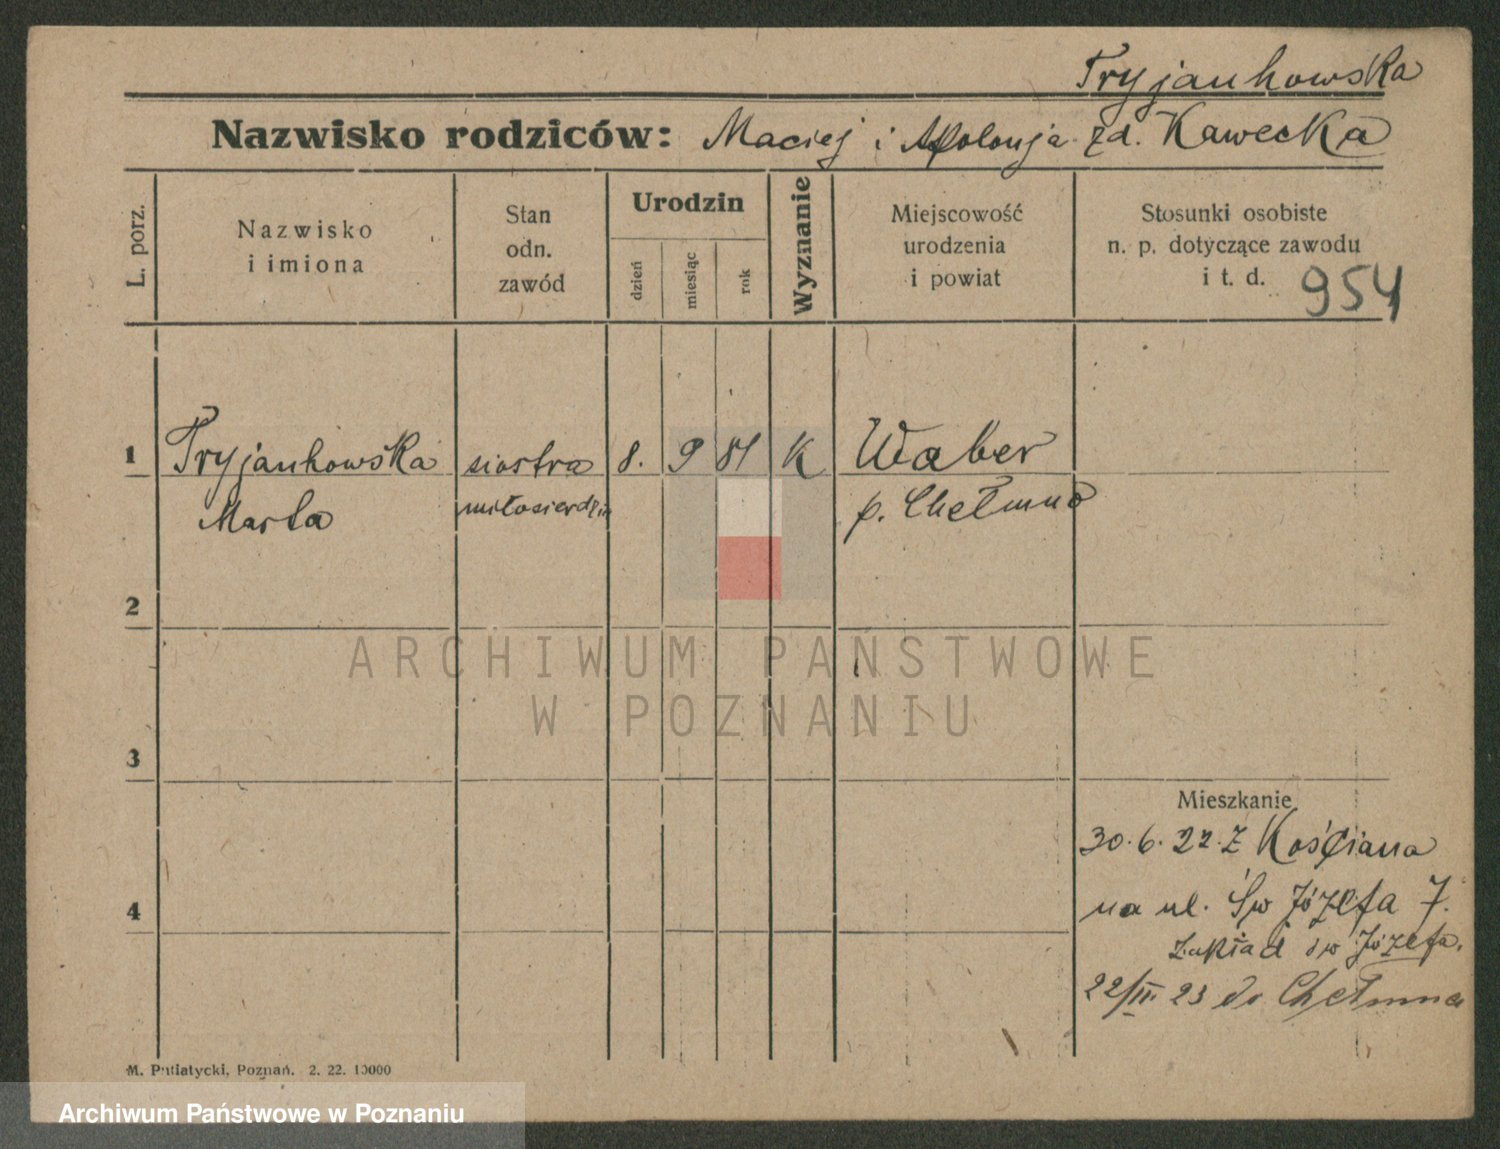 Tryjankowska
Nazwisko rodziców: Maciej i Apolonja zd. Kawecka
L. porz.
Nazwisko
i imiona
Stan
odn.
zawód
Urodzin
dzień
miesiąc
rok
Wyznanie
Miejscowość
urodzenia
i powiat
Stosunki osobiste
n. p. dotyczące zawodu
i t. d.
954
1 Tryjankowska siostra 8. 9 81 K Waber
Marta miłosierdzia p. Chełmno
2
ARCHIWUM PAŃSTWOWE
W POZNANIU
3
Mieszkanie
30.6.22. z Kościana
4
na ul. Św Józefa 7.
Zakład św Józefa.
22/III 23 do Chełmna
M. Putiatycki, Poznań. 2. 22. 10000
Archiwum Państwowe w Poznaniu